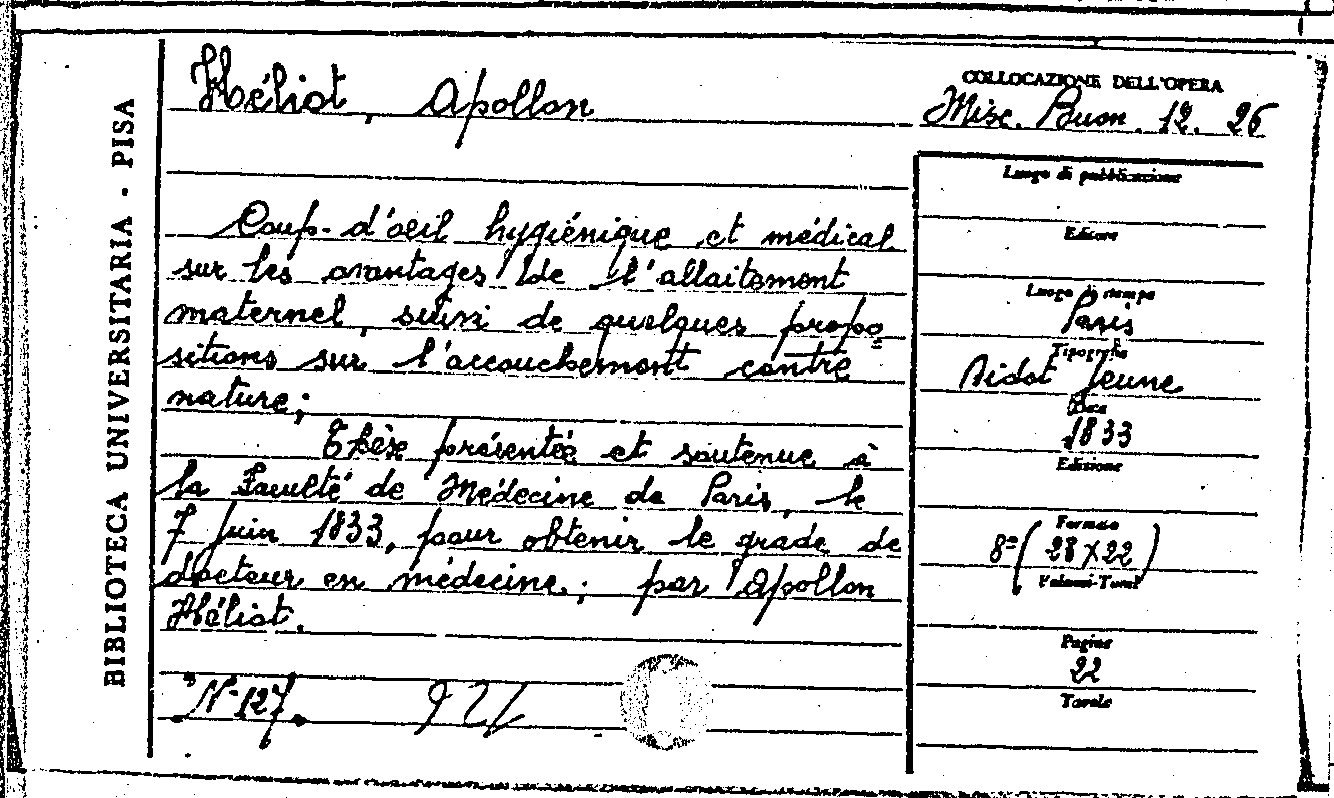 BIBLIOTECA UNIVERSITARIA - PISA
Héliot, Apollon
Coup-d'oeil hygiénique et médical
sur les avantages de l'allaitement
maternel, suivi de quelques propo
sitions sur l'accouchement contre
nature;
Thèse présentée et soutenue à
la Faculté de Médecine de Paris, le
7 Juin 1833, pour obtenir le grade de
docteur en médecine; par Apollon
Héliot.
N-127.
COLLOCAZIONE DELL'OPERA
Misc. Buon. 12. 26
Luogo di pubblicazione
Editore
Luogo di stampa
Paris
Tipografia
Didot Jeune
Data
1833
Edizione
Formato
8º (28X22)
Volumi-Tomi
Pagine
22
Tavole